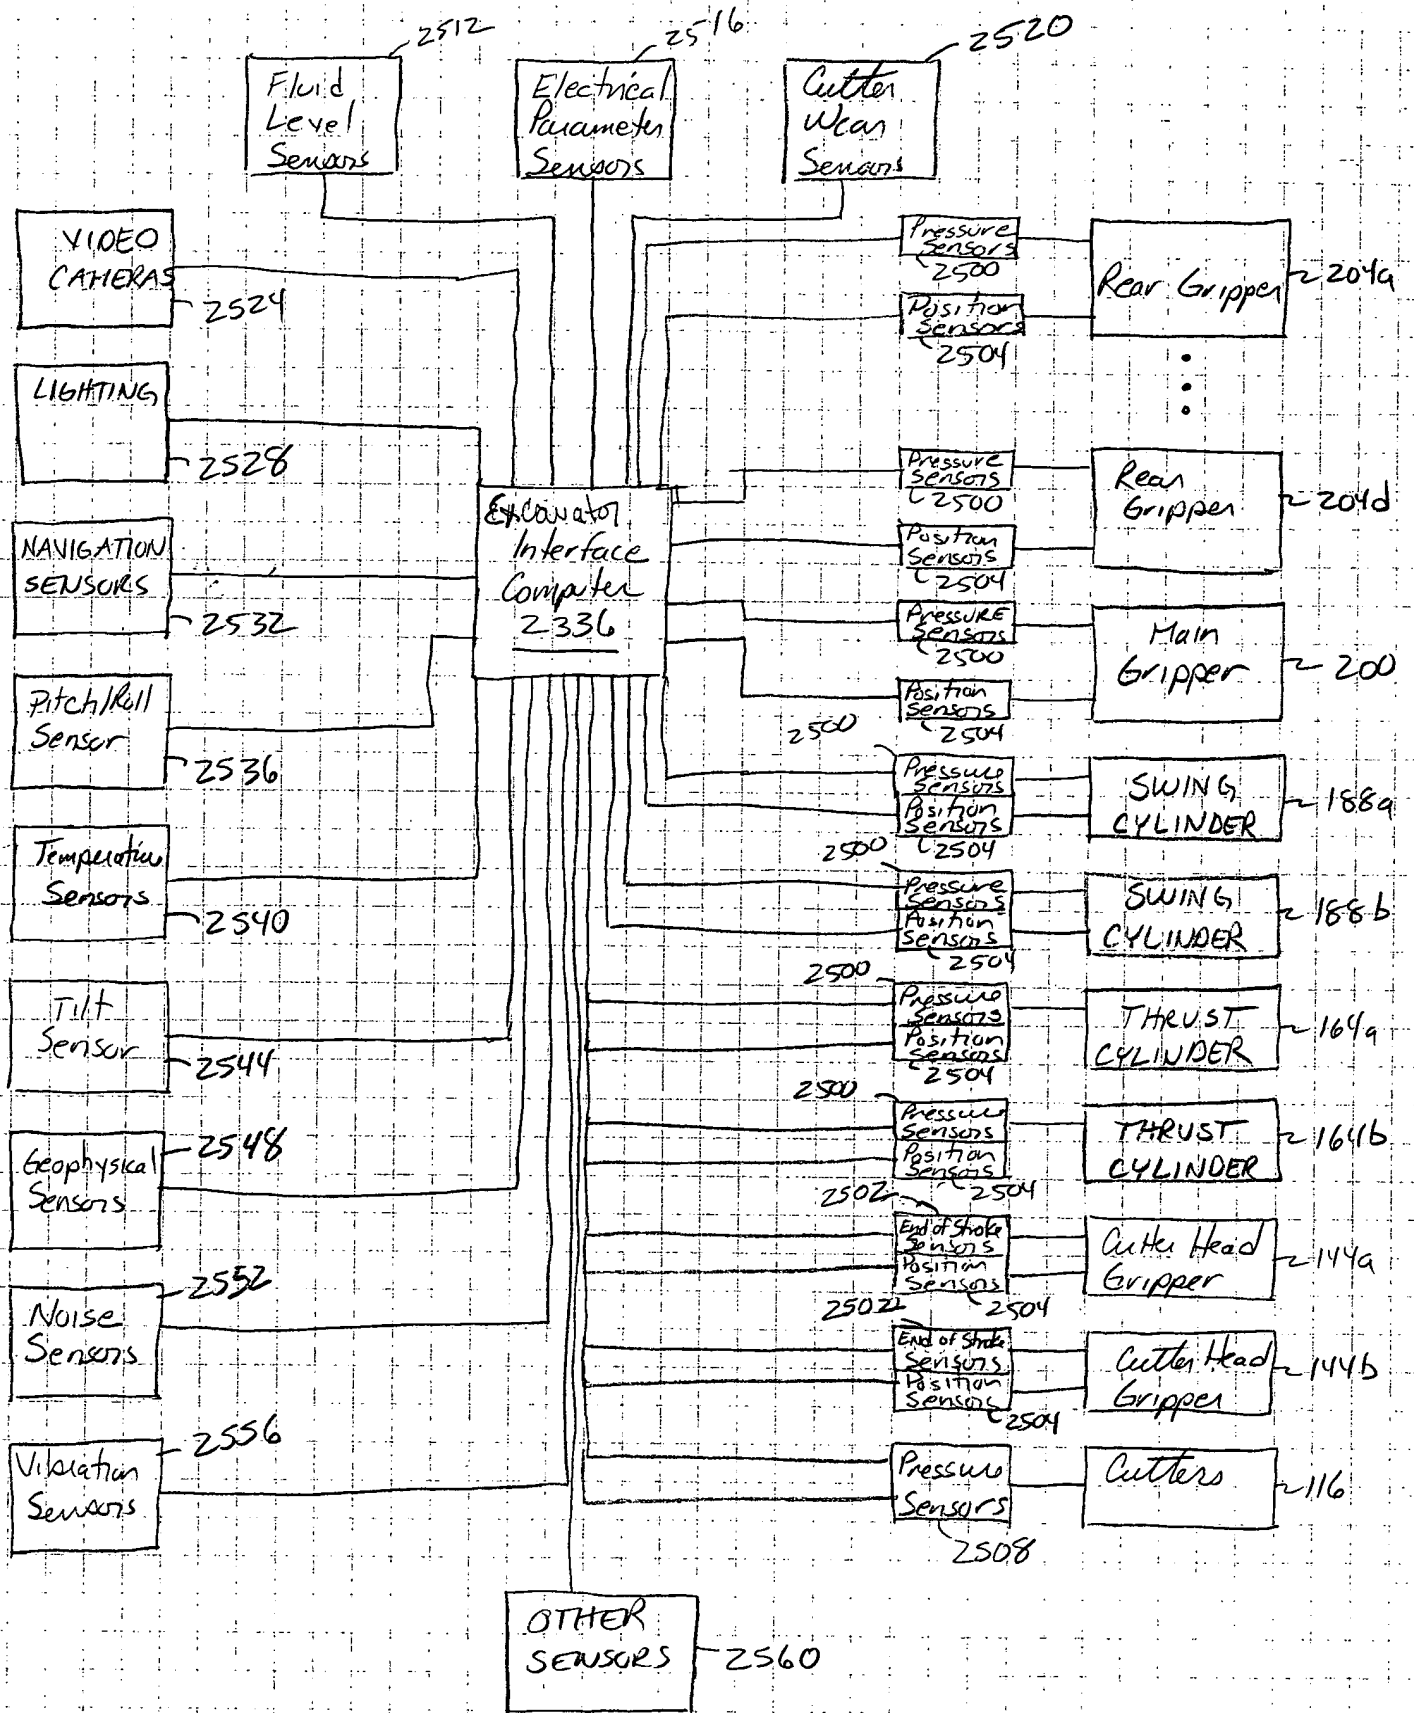 2512
Fluid
Level
Sensors
2516
Electrical
Parameter
Sensors
2520
Cutter
Wear
Sensors
VIDEO
CAMERAS
2524
LIGHTING
2528
NAVIGATION
SENSORS
2532
Pitch/Roll
Sensor
2536
Temperature
Sensors
2540
Tilt
Sensor
2544
Geophysical
Sensors
2548
Noise
Sensors
2552
Vibration
Sensors
2556
Excavator
Interface
Computer
2336
Pressure
Sensors
2500
Position
Sensors
2504
Rear Gripper
204a
Pressure
Sensors
2500
Position
Sensors
2504
Rear
Gripper
204d
PRESSURE
Sensors
2500
Position
Sensors
2504
Main
Gripper
200
2500
Pressure
Sensors
Position
Sensors
2504
SWING
CYLINDER
188a
2500
Pressure
Sensors
Position
Sensors
2504
SWING
CYLINDER
188b
2500
Pressure
Sensors
Position
Sensors
2504
THRUST
CYLINDER
164a
2500
Pressure
Sensors
Position
Sensors
2504
THRUST
CYLINDER
164b
2502
End of Stroke
Sensors
Position
Sensors
2504
Cutter Head
Gripper
144a
2502
End of Stroke
Sensors
Position
Sensors
2504
Cutter Head
Gripper
144b
Pressure
Sensors
2508
Cutters
116
OTHER
SENSORS
2560